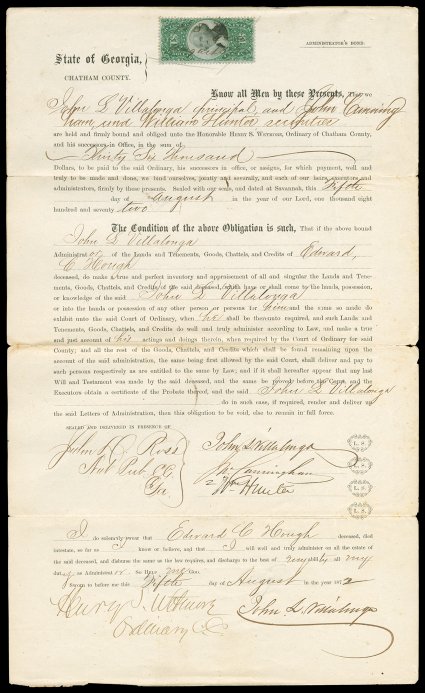 ADMINISTRATOR'S BOND.
State of Georgia,
CHATHAM COUNTY.
Know all Men by these Presents, That we
John L Villalonga principal, and John Cunning
ham and William Hunter securities
are held and firmly bound and obliged unto the Honorable HENRY S. WETMORE, Ordinary of Chatham County,
and his successors in Office, in the sum of
Thirty Six Thousand
Dollars, to be paid to the said Ordinary, his successors in office, or assigns, for which payment, well and
truly to be made and done, we bind ourselves, jointly and severally, and each of our heirs, executors and
administrators, firmly by these presents. Sealed with our seals, and dated at Savannah, this Fifth
day of August in the year of our Lord, one thousand eight
hundred and seventy two
The Condition of the above Obligation is such, That if the above bound
John L Villalonga
Administrator of the Lands and Tenements, Goods, Chattels, and Credits of Edward
C. Hough
deceased, do make a true and perfect inventory and appraisement of all and singular the Lands and Tene-
ments, Goods, Chattels, and Credits of the said deceased, which have or shall come to the hands, possession,
or knowledge of the said John L Villalonga
or into the hands or possession of any other person or persons for him and the same so made do
exhibit unto the said Court of Ordinary, when he shall be thereunto required, and such Lands and
Tenements, Goods, Chattels, and Credits do well and truly administer according to Law, and make a true
and just account of his actings and doings therein, when required by the Court of Ordinary for said
County; and all the rest of the Goods, Chattels, and Credits which shall be found remaining upon the
account of the said administration, the same being first allowed by the said Court, shall deliver and pay to
such persons respectively as are entitled to the same by Law; and if it shall hereafter appear that any last
Will and Testament was made by the said deceased, and the same be proved before the Court, and the
Executors obtain a certificate of the Probate thereof, and the said John L Villalonga
do in such case, if required, render and deliver up
the said Letters of Administration, then this obligation to be void, else to remain in full force.
SEALED AND DELIVERED IN PRESENCE OF
John L Villalonga L. S.
John C. Ross
Jn Cunningham L. S.
Not Pub CC
Wm Hunter L. S.
Ga
L. S.
I do solemnly swear that Edward C Hough deceased, died
intestate, so far as I know or believe, and that I will well and truly administer on all the estate
of the said deceased, and disburse the same as the law requires, and discharge to the best of my ability all my
duty as Administrator. SO HELP me GOD.
Sworn to before me this Fifth day of August in the year 1872
Henry S. Wetmore John L Villalonga
Ordinary C.C.